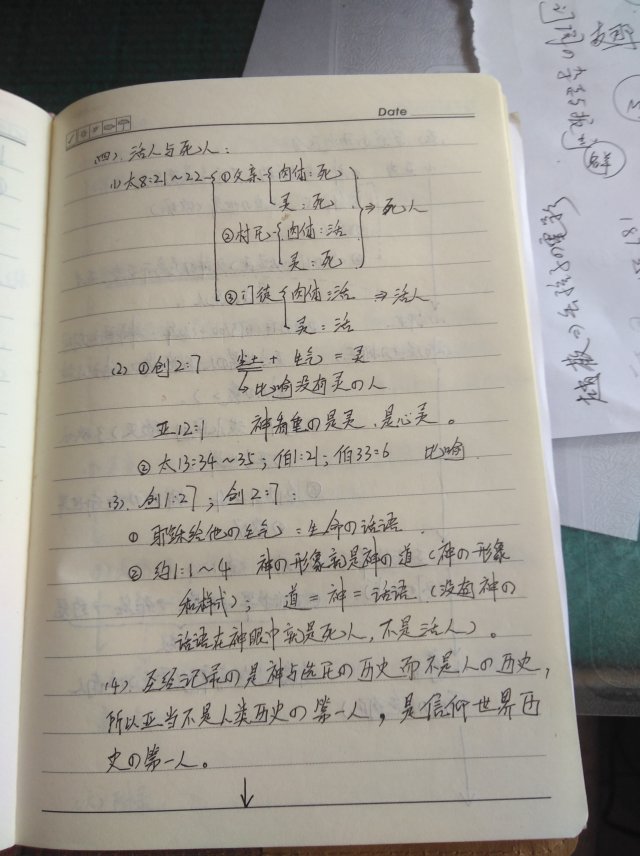 Date
(四). 活人与死人:
(1) 太8:21~22 ①父亲 肉体:死
灵:死 ⇒ 死人
②村民 肉体:活
灵:死
③门徒 肉体:活 ⇒ 活人
灵:活
(2) ①创2:7 尘土 + 生气 = 灵
↳ 比喻没有灵の人
亚12:1 神看重の是灵,是心灵。
②太13:34~35; 伯1:21; 伯33:6 比喻.
(3). 创1:27; 创2:7:
① 耶稣给他の生气: 生命の话语.
② 约1:1~4 神の形象就是神の道(神の形象
和样式); 道 = 神 = 话语 (没有神の
话语在神眼中就是死人, 不是活人)。
(4). 圣经记录の是神与选民の历史而不是人の历史,
所以亚当不是人类历史の第一人, 是信仰世界历
史の第一人。
↓